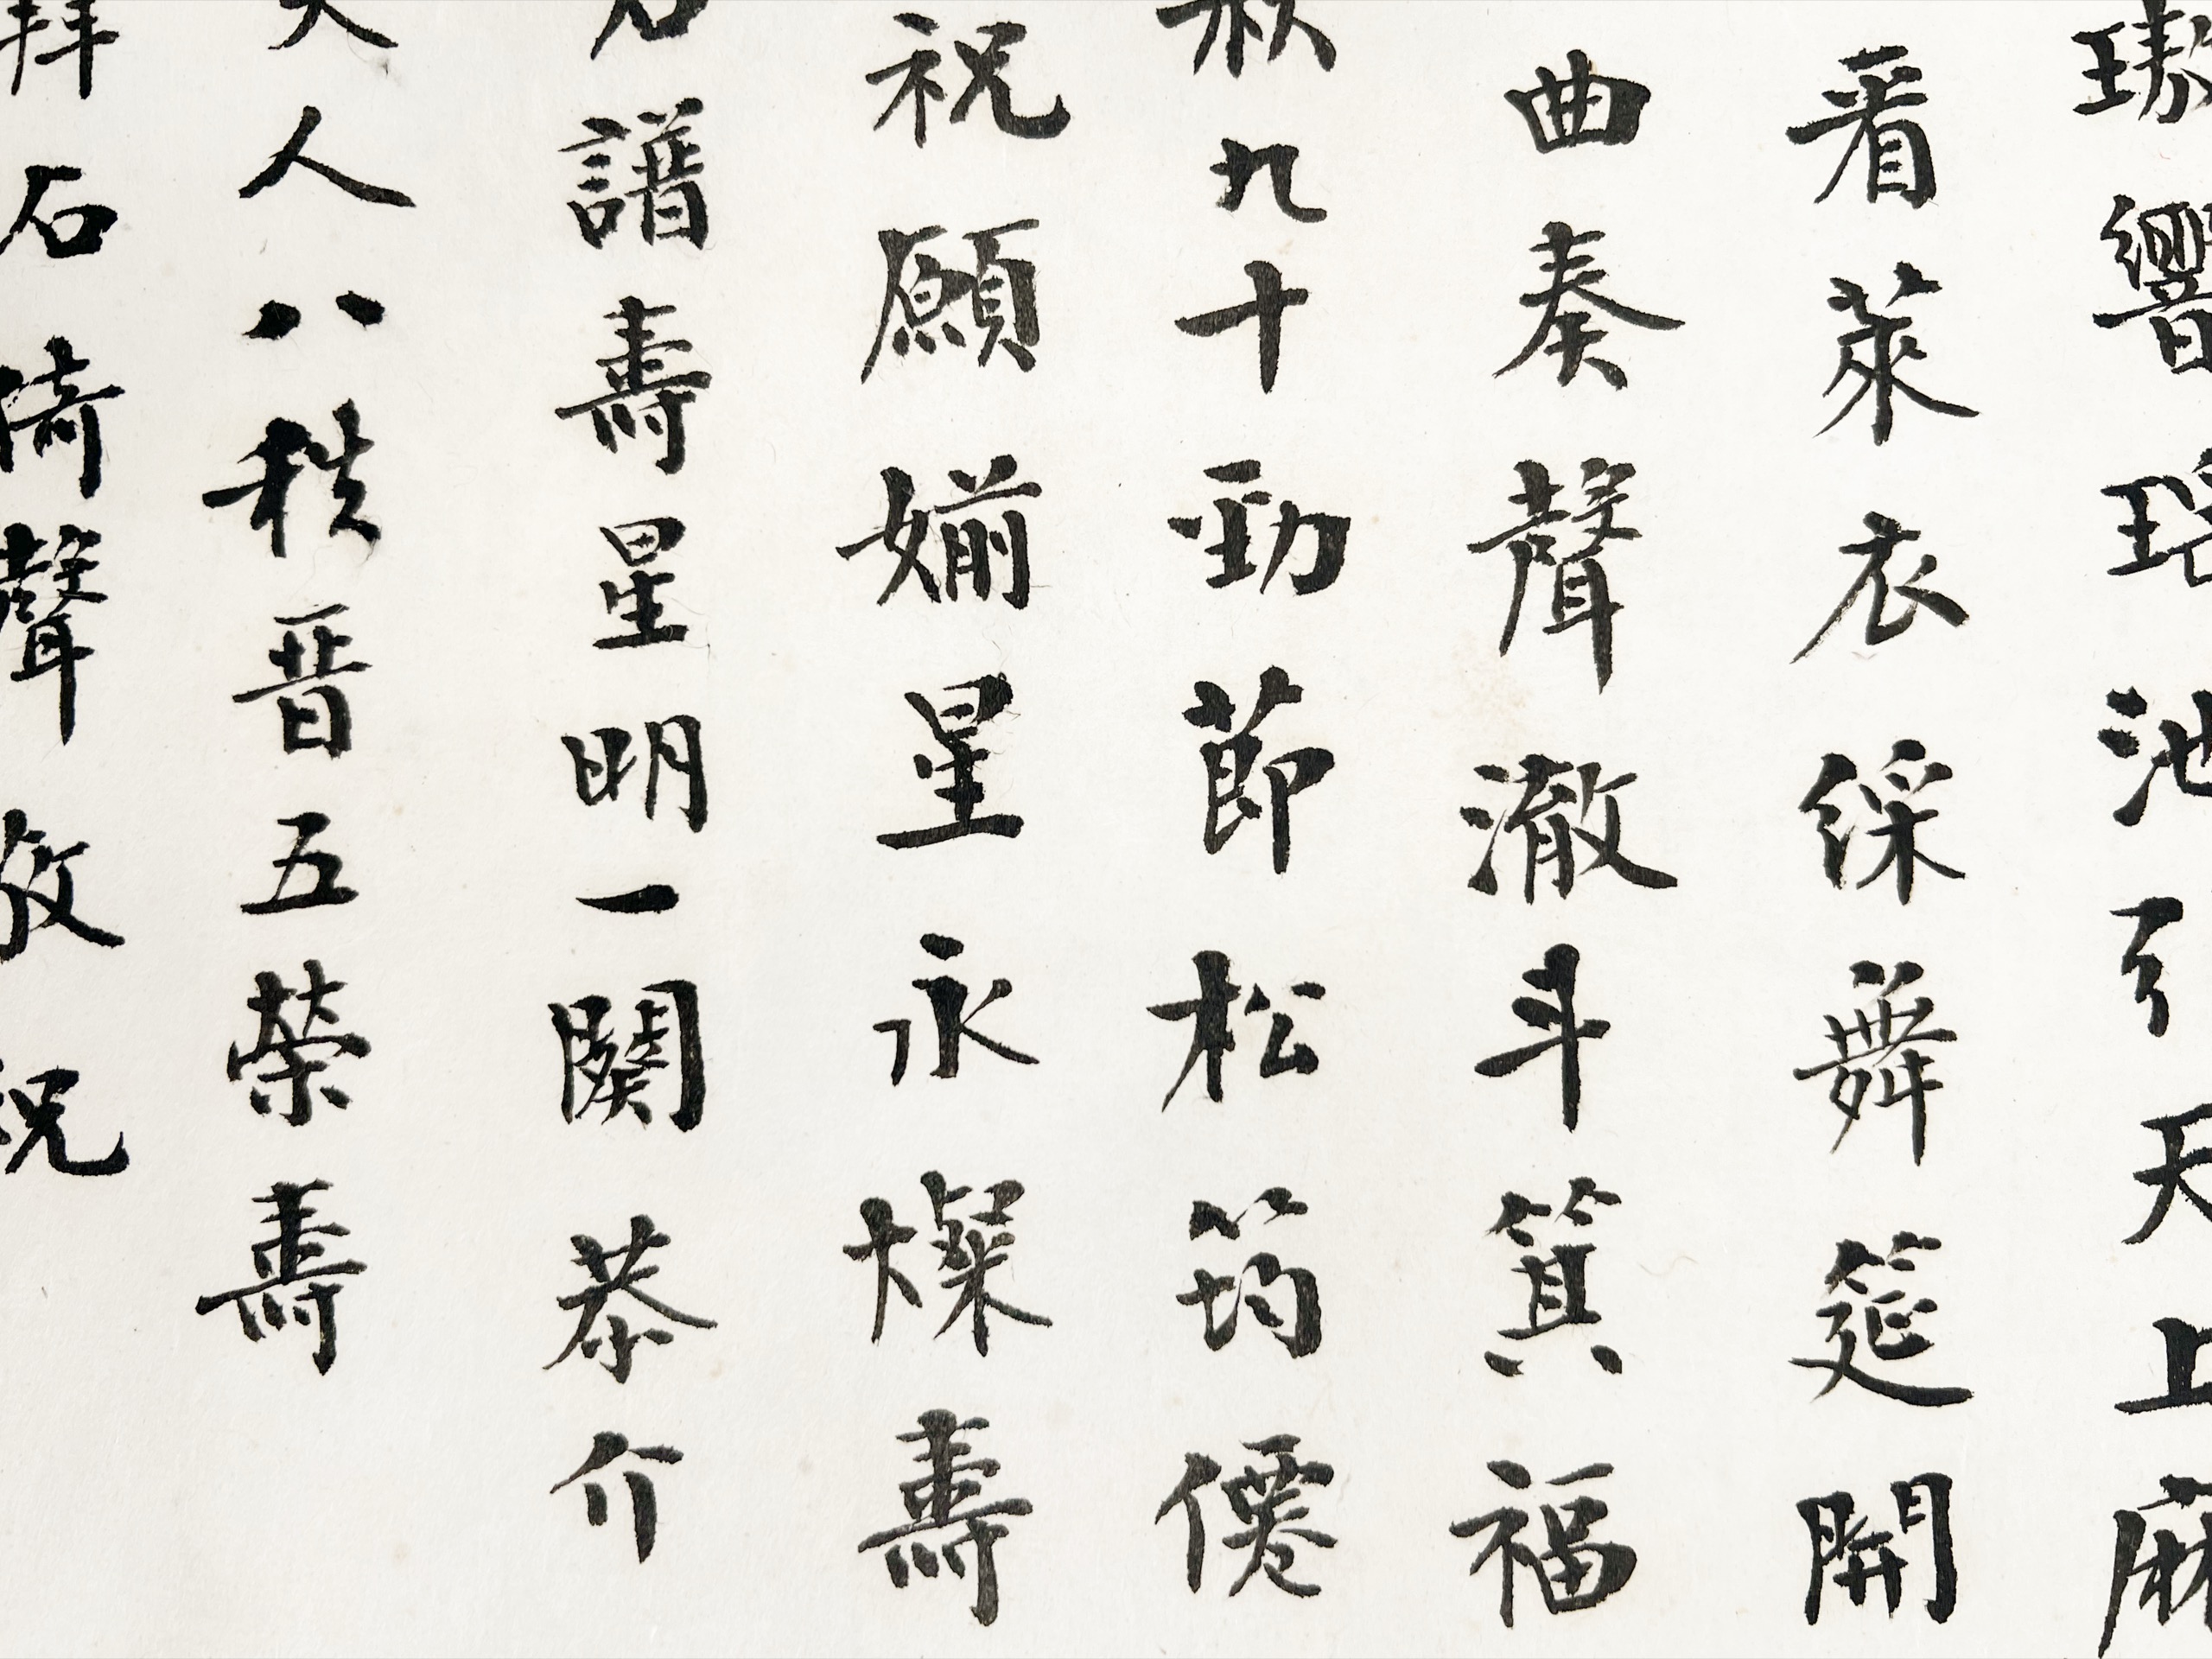 璈響瑶池引天上麻
看萊衣綵舞筵開
曲奏聲澈斗箕福
秋九十勁節松筠僊
祝願婣星永燦壽
譜壽星明一闋恭介
人八秩晉五榮壽
拜石倚聲敬祝